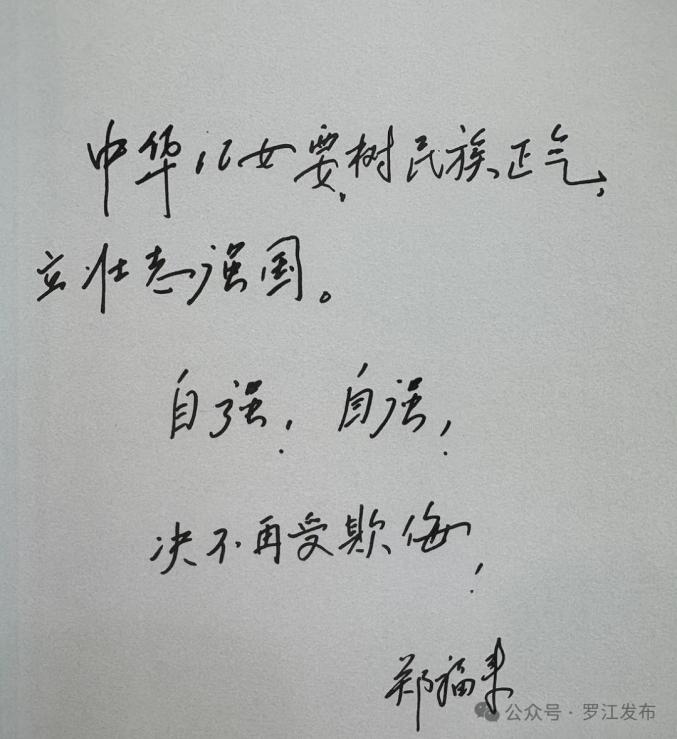 中华儿女要树民族正气,
立壮志强国。
自强!自强!
决不再受欺侮!
郑福来
公众号·罗江发布